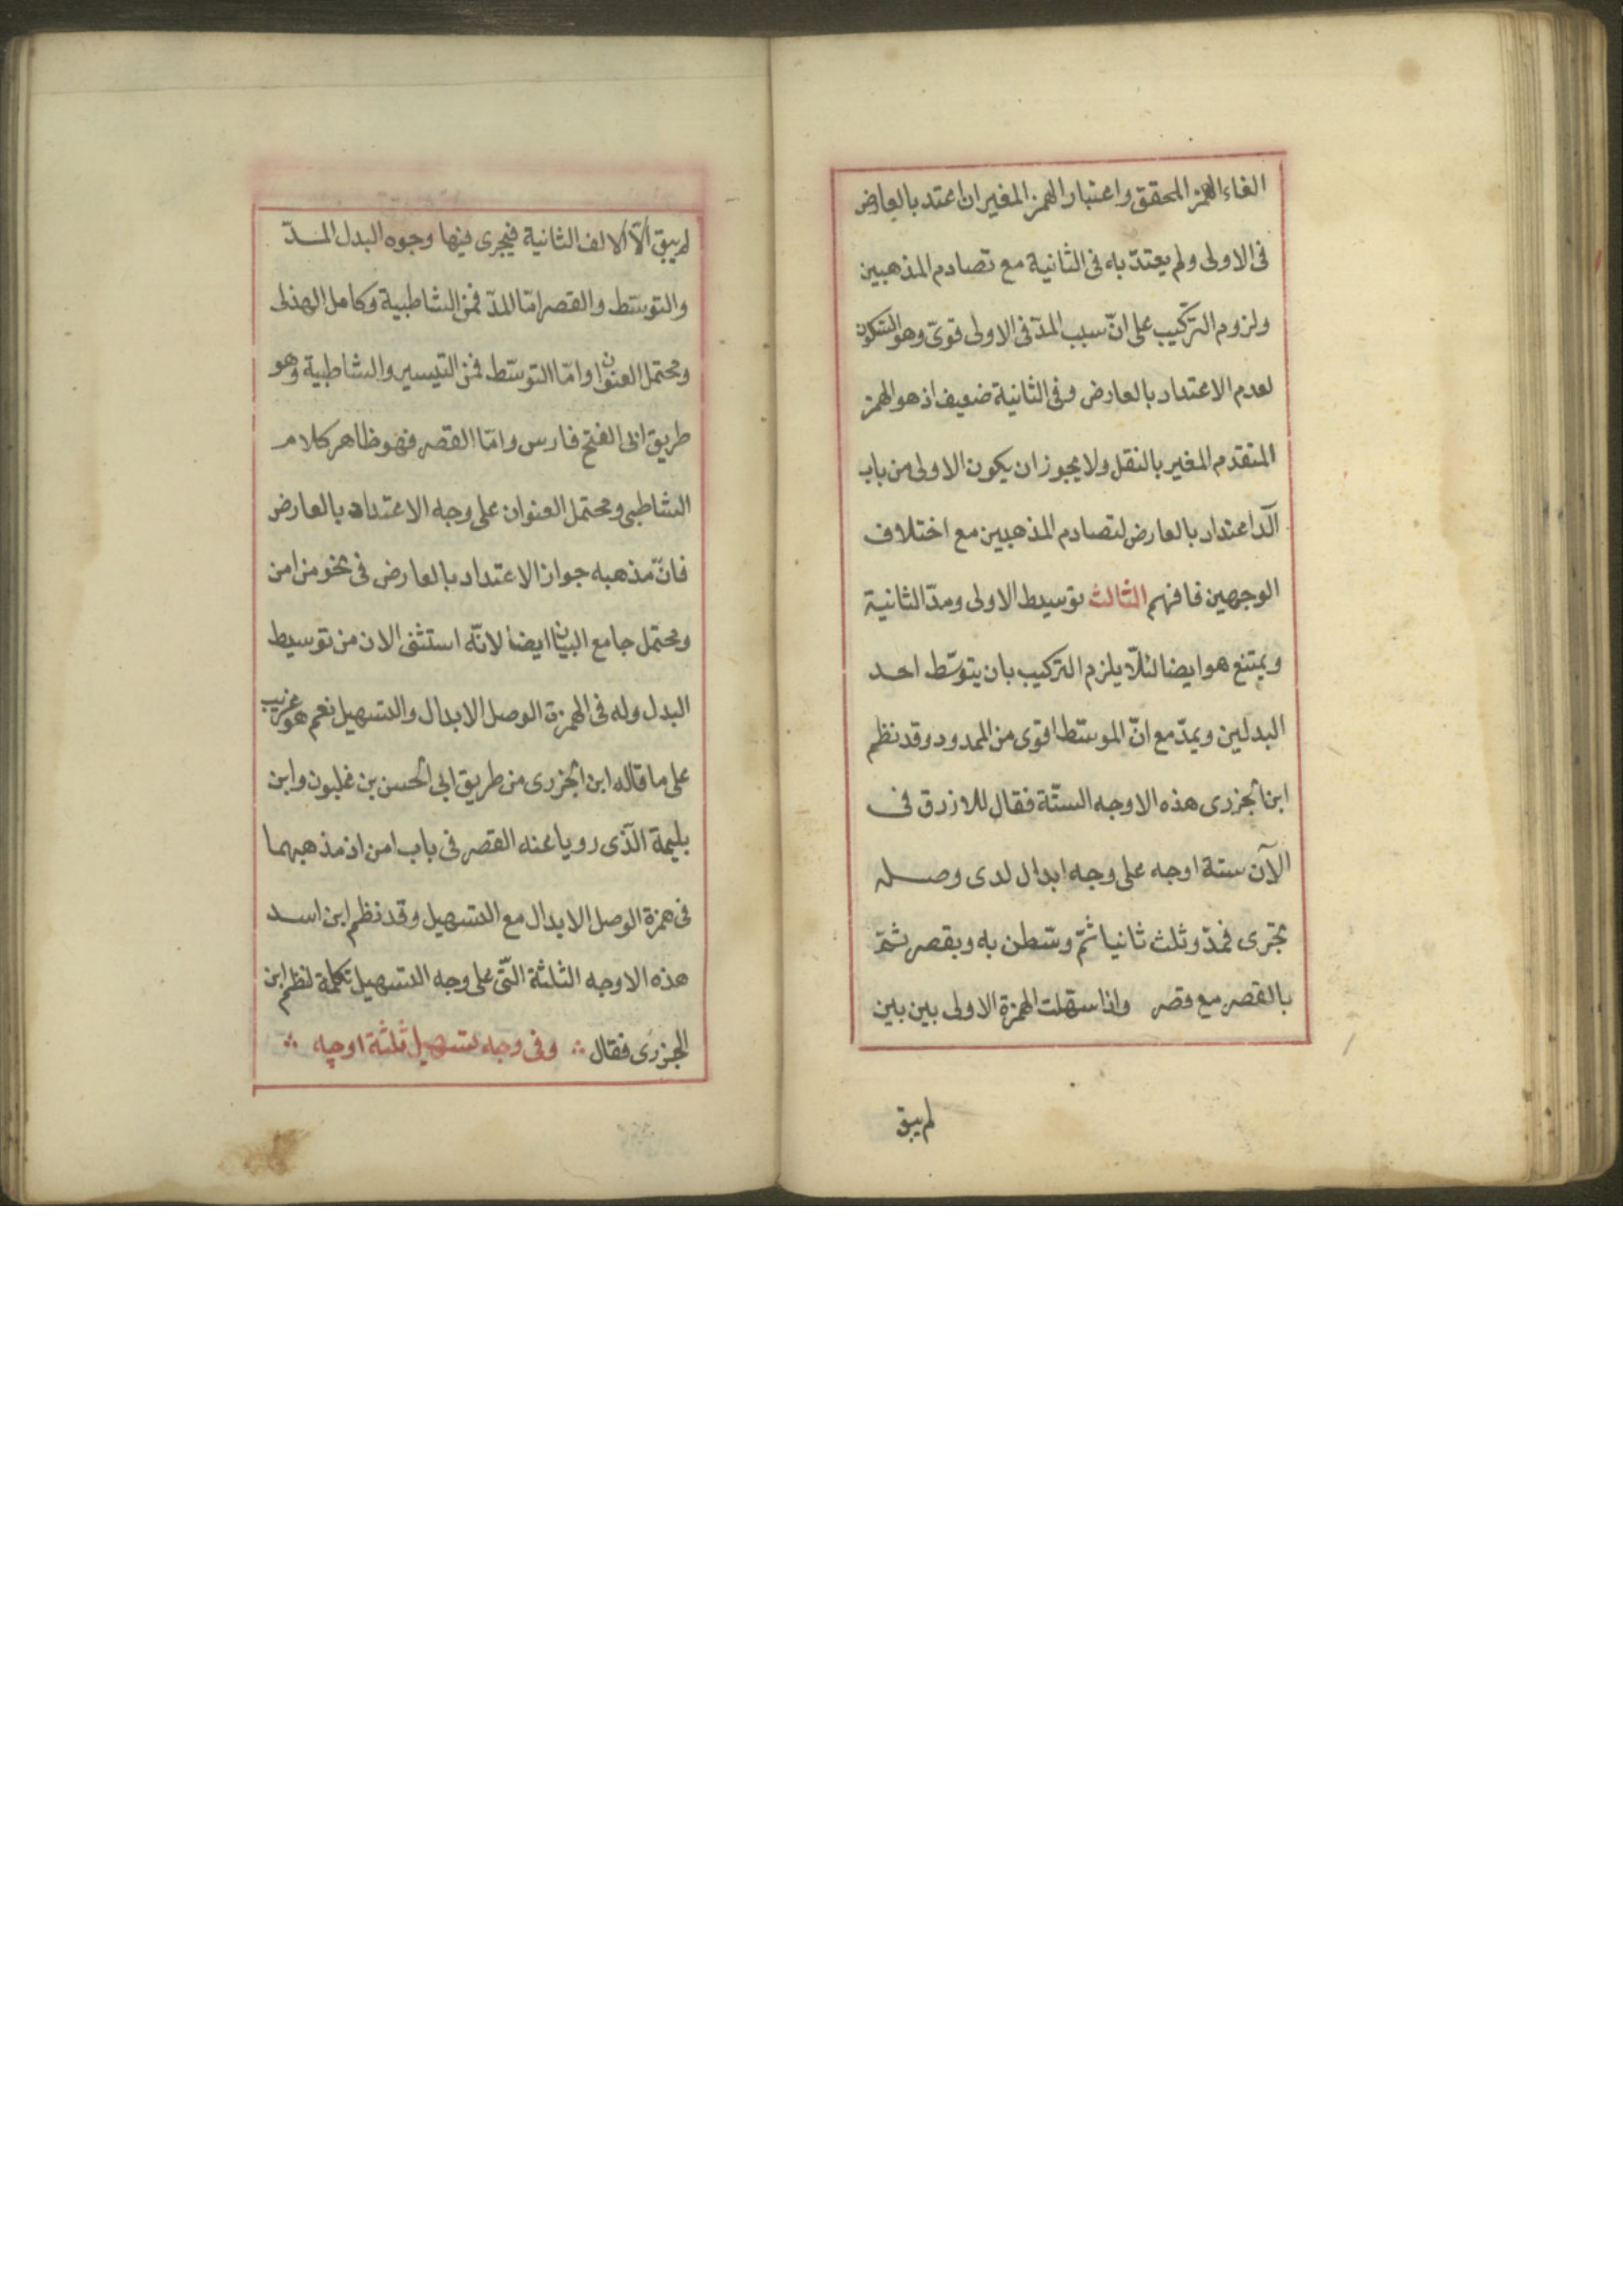 الغاء الهمز المحقق واعتبار الهمز المغير ان اعتد بالعارض
فى الاولى ولم يعتدّ به فى الثانية مع تصادم المذهبين
ولزوم التركيب على انّ سبب المدّ فى الاولى قوىّ وهو السكون
لعدم الاعتداد بالعارض وفى الثانية ضعيف اذ هو الهمز
المتقدم المغير بالنقل ولا يجوز ان يكون الاولى من باب
آلد اعتداد بالعارض لتصادم المذهبين مع اختلاف
الوجهين فافهم الثالث توسيط الاولى ومدّ الثانية
ويمتنع هو ايضا لئلّا يلزم التركيب بان يتوسّط احد
البدلين ويمدّ مع انّ الموسّط اقوى من الممدود وقد نظم
ابن الجزرى هذه الاوجه الستّة فقال للازرق فى
الآن ستة اوجه على وجه ابدال لدى وصله
تجرى فمدّ وثلث ثانيا ثمّ وسّطن به وبقصر ثمّ
بالقصر مع قصر واذا سهّلت الهمزة الاولى بين بين
لم يبق
لم يبق الّا الالف الثانية فيجرى فيها وجوه البدل المدّ
والتوسّط والقصر امّا المدّ فمن الشاطبية وكامل الهذلى
ومحتمل العنوان وامّا التوسّط فمن التيسير والشاطبية وهو
طريق ابى الفتح فارس وامّا القصر فهو ظاهر كلام
الشاطبى ومحتمل العنوان على وجه الاعتداد بالعارض
فانّ مذهبه جواز الاعتداد بالعارض فى نحو من امن
ومحتمل جامع البيان ايضا لانّه استثنى الان من توسيط
البدل وله فى الهمزة الوصل الابدال والتسهيل نعم هو غريب
على ما قاله ابن الجزرى من طريق ابى الحسن بن غلبون وابن
بليمة الّذى رويا عنه القصر فى باب امن اذ مذهبهما
فى همزة الوصل الابدال مع التسهيل وقد نظم ابن اسد
هذه الاوجه الثلثة الّتى على وجه التسهيل تكملة لنظم ابن
الجزرى فقال ∴ وفى وجه تسهيل ثلثة اوجه ∴